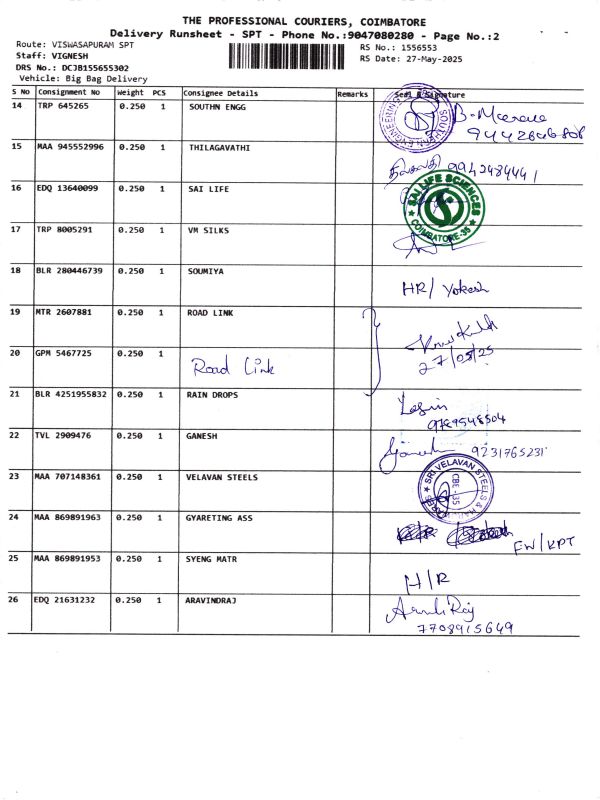 THE PROFESSIONAL COURIERS, COIMBATORE
Delivery Runsheet - SPT - Phone No.:9047080280 - Page No.:2
Route: VISWASAPURAM SPT
Staff: VIGNESH
DRS No.: DCJB155655302
Vehicle: Big Bag Delivery
RS No.: 1556553
RS Date: 27-May-2025
S No Consignment No Weight PCS Consignee Details Remarks Seal & Signature
14 TRP 645265 0.250 1 SOUTHN ENGG
9442846808
15 MAA 945552996 0.250 1 THILAGAVATHI
திலகவதி 9942484441
16 EDQ 13640099 0.250 1 SAI LIFE
SAI LIFE SCIENCES
COIMBATORE-35
17 TRP 8005291 0.250 1 VM SILKS
18 BLR 280446739 0.250 1 SOUMIYA HR/ Yokesh
19 MTR 2607881 0.250 1 ROAD LINK
20 GPM 5467725 0.250 1 Road Link 27/05/25
21 BLR 4251955832 0.250 1 RAIN DROPS
9789548504
22 TVL 2909476 0.250 1 GANESH Ganesh 9231765231
23 MAA 707148361 0.250 1 VELAVAN STEELS
SRI VELAVAN STEELS &
CBE-35
24 MAA 869891963 0.250 1 GYARETING ASS FW/KPT
25 MAA 869891953 0.250 1 SYENG MATR H/R
26 EDQ 21631232 0.250 1 ARAVINDRAJ
7708915649